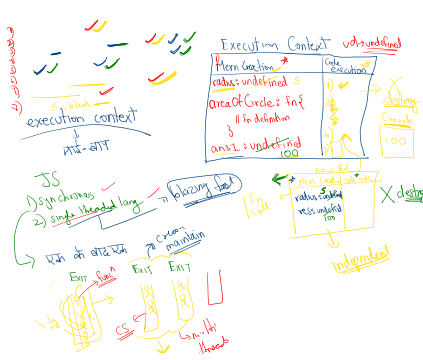 execution context
माई-बाप
JS
1) synchronous
2) single threaded lang
blazing fast
एक के बाद एक
create
maintain
EXIT
func^n
EXIT
EXIT
CS
multi
threads
Execution Context
val→undefined
Mem Creation
Code
execution
radius: undefined 5
areaOfCircle: fn{
// fn definition
}
ans1: undefined
100
X
destroy
Console
100
radius: undefined
5
res: undefined
100
X destroy
independent